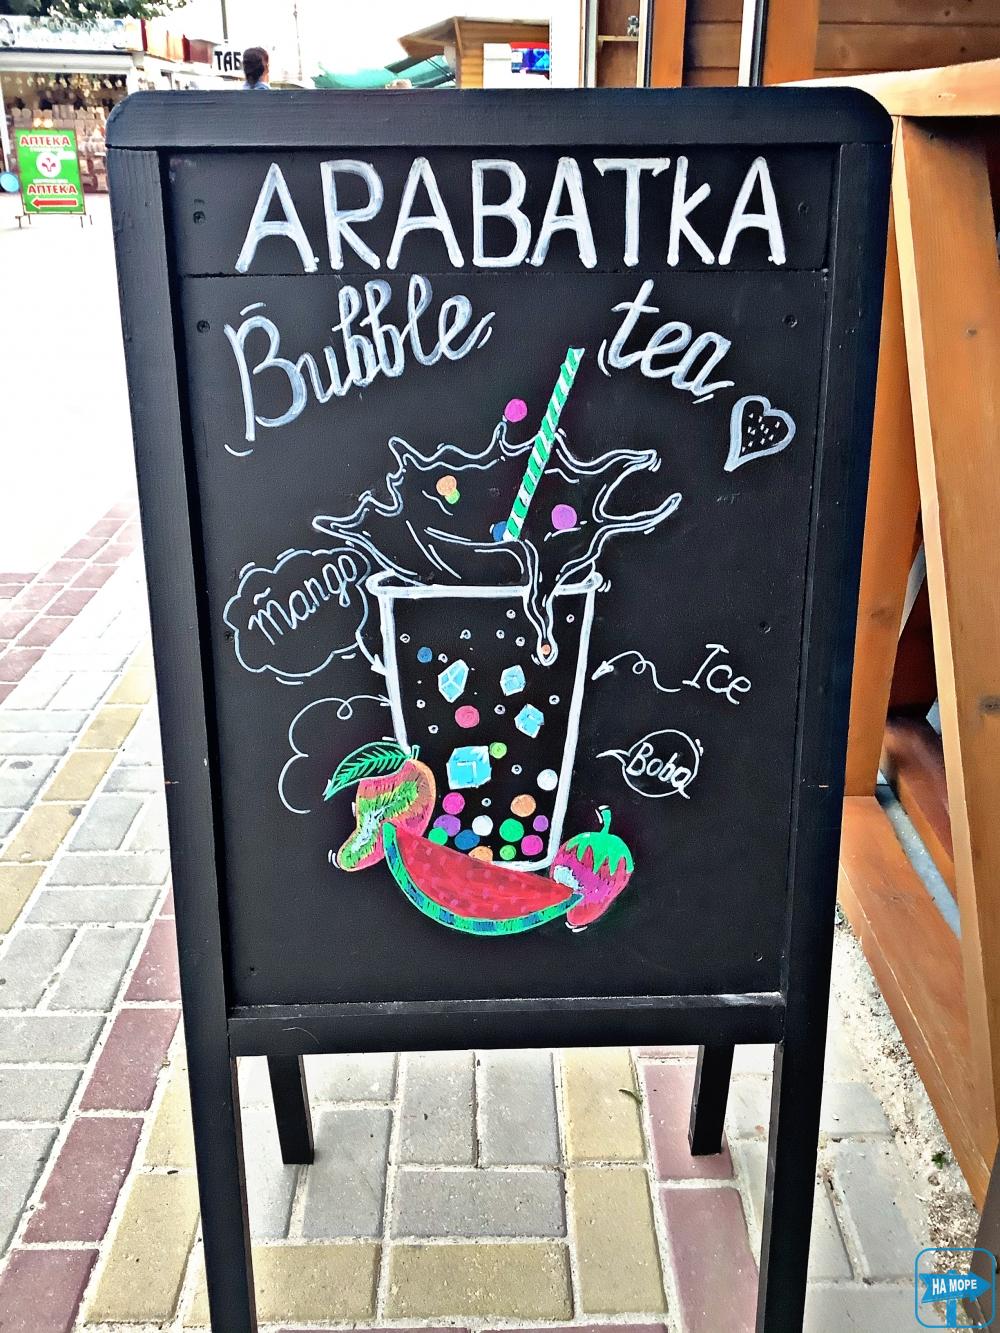 ТАБ
АПТЕКА
АПТЕКА
ARABATKA
Bubble tea
Mango
Ice
Boba
НА МОРЕ